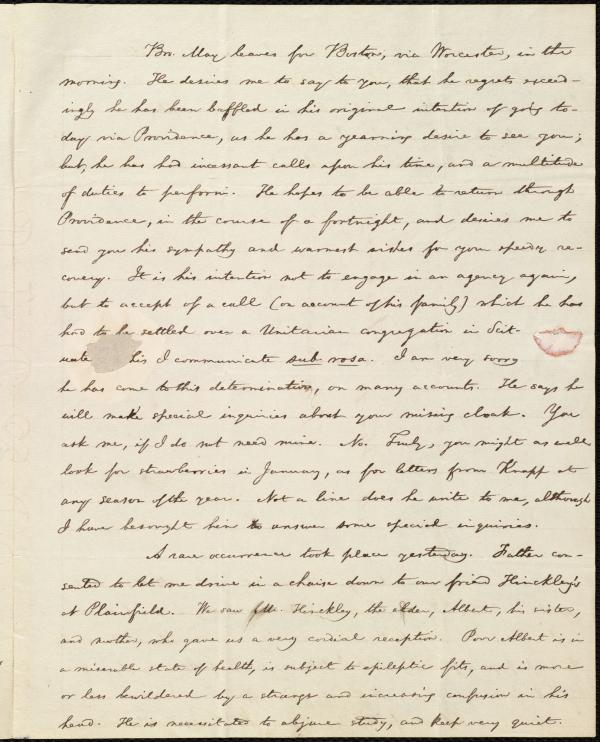 Bro. May leaves for Boston, via Worcester, in the
morning. He desires me to say to you, that he regrets exceed-
ingly he has been baffled in his original intention of going to-
day via Providence, as he has a yearning desire to see you;
but, he has had incessant calls upon his time, and a multitude
of duties to perform. He hopes to be able to return through
Providence, in the course of a fortnight, and desires me to
send you his sympathy and warmest wishes for your speedy re-
covery. It is his intention not to engage in an agency again,
but to accept of a call (on account of his family) which he has
had to be settled over a Unitarian congregation in Scit-
uate his I communicate sub rosa. I am very sorry
he has come to this determination, on many accounts. He says he
will make special inquiries about your missing cloak. You
ask me, if I do not need mine. No. Truly, you might as well
look for strawberries in January, as for letters from Knapp at
any season of the year. Not a line does he write to me, although
I have besought him to answer some special inquiries.
A rare occurrence took place yesterday. Father con-
sented to let me drive in a chaise down to our friend Hinckley's
at Plainfield. We saw Mr. Hinckley, the elder, Albert, his sister,
and mother, who gave us a very cordial reception. Poor Albert is in
a miserable state of health, is subject to epileptic fits, and is more
or less bewildered by a strange and increasing confusion in his
head. He is necessitated to abjure study, and keep very quiet.